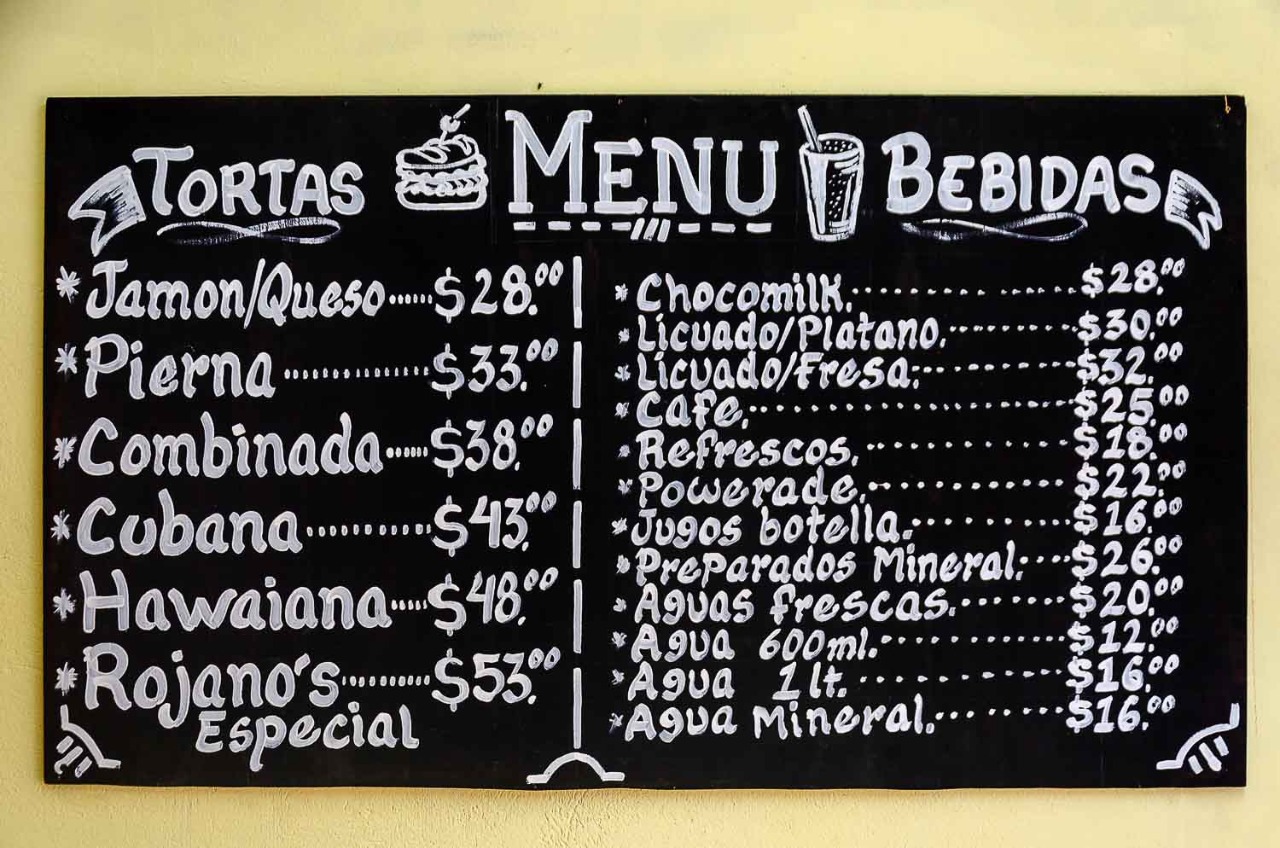 TORTAS
MENU
BEBIDAS
* Jamon/Queso......$28.00
* Pierna.............$33.00
* Combinada.....$38.00
* Cubana.........$43.00
* Hawaiana....$48.00
* Rojano's.........$53.00
Especial
* Chocomilk...............$28.00
* Licuado/Platano..........$30.00
* Licuado/Fresa:...........$32.00
* Cafe.......................$25.00
* Refrescos................$18.00
* Powerade................$22.00
* Jugos botella............$16.00
* Preparados Mineral:...$26.00
* Aguas frescas........$20.00
* Agua 600ml..............$12.00
* Agua 1lt................$16.00
* Agua Mineral..........$16.00